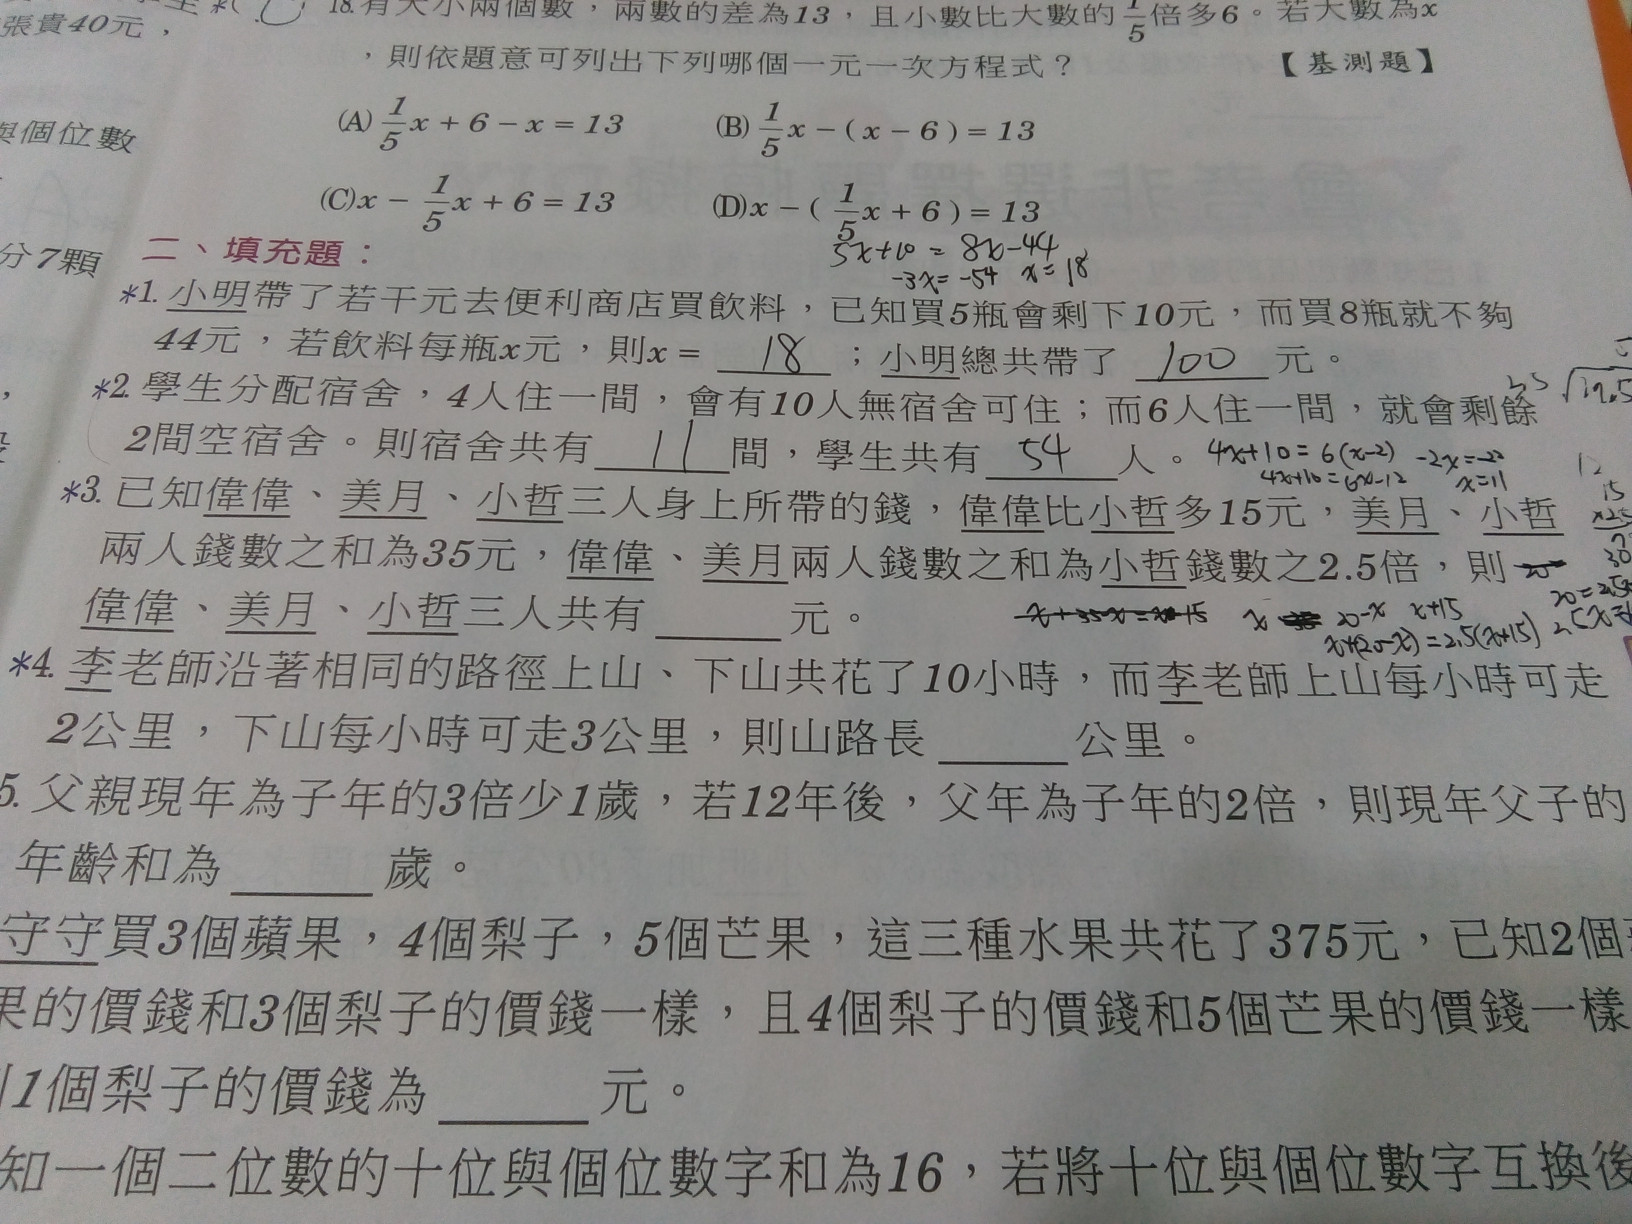 18.有大小兩個數,兩數的差為13,且小數比大數的1/5倍多6。若大數為x
張貴40元,
,則依題意可列出下列哪個一元一次方程式? 【基測題】
(A) 1/5x+6-x=13 (B) 1/5x-(x-6)=13
與個位數
(C)x-1/5x+6=13 (D)x-(1/5x+6)=13
分7顆
二、填充題:
5x+10=8x-44
-3x=-54 x=18
*1.小明帶了若干元去便利商店買飲料,已知買5瓶會剩下10元,而買8瓶就不夠
44元,若飲料每瓶x元,則x= 18 ;小明總共帶了 100 元。
*2.學生分配宿舍,4人住一間,會有10人無宿舍可住;而6人住一間,就會剩餘
2間空宿舍。則宿舍共有 11 間,學生共有 54 人。 4x+10=6(x-2) -2x=-22
4x+10=6x-12 x=11
*3.已知偉偉、美月、小哲三人身上所帶的錢,偉偉比小哲多15元,美月、小哲
兩人錢數之和為35元,偉偉、美月兩人錢數之和為小哲錢數之2.5倍,則
偉偉、美月、小哲三人共有 元。
x 20-x x+15
x+(20-x)=2.5(x+15)
*4.李老師沿著相同的路徑上山、下山共花了10小時,而李老師上山每小時可走
2公里,下山每小時可走3公里,則山路長 公里。
5.父親現年為子年的3倍少1歲,若12年後,父年為子年的2倍,則現年父子的
年齡和為 歲。
守守買3個蘋果,4個梨子,5個芒果,這三種水果共花了375元,已知2個
果的價錢和3個梨子的價錢一樣,且4個梨子的價錢和5個芒果的價錢一樣
1個梨子的價錢為 元。
知一個二位數的十位與個位數字和為16,若將十位與個位數字互換後